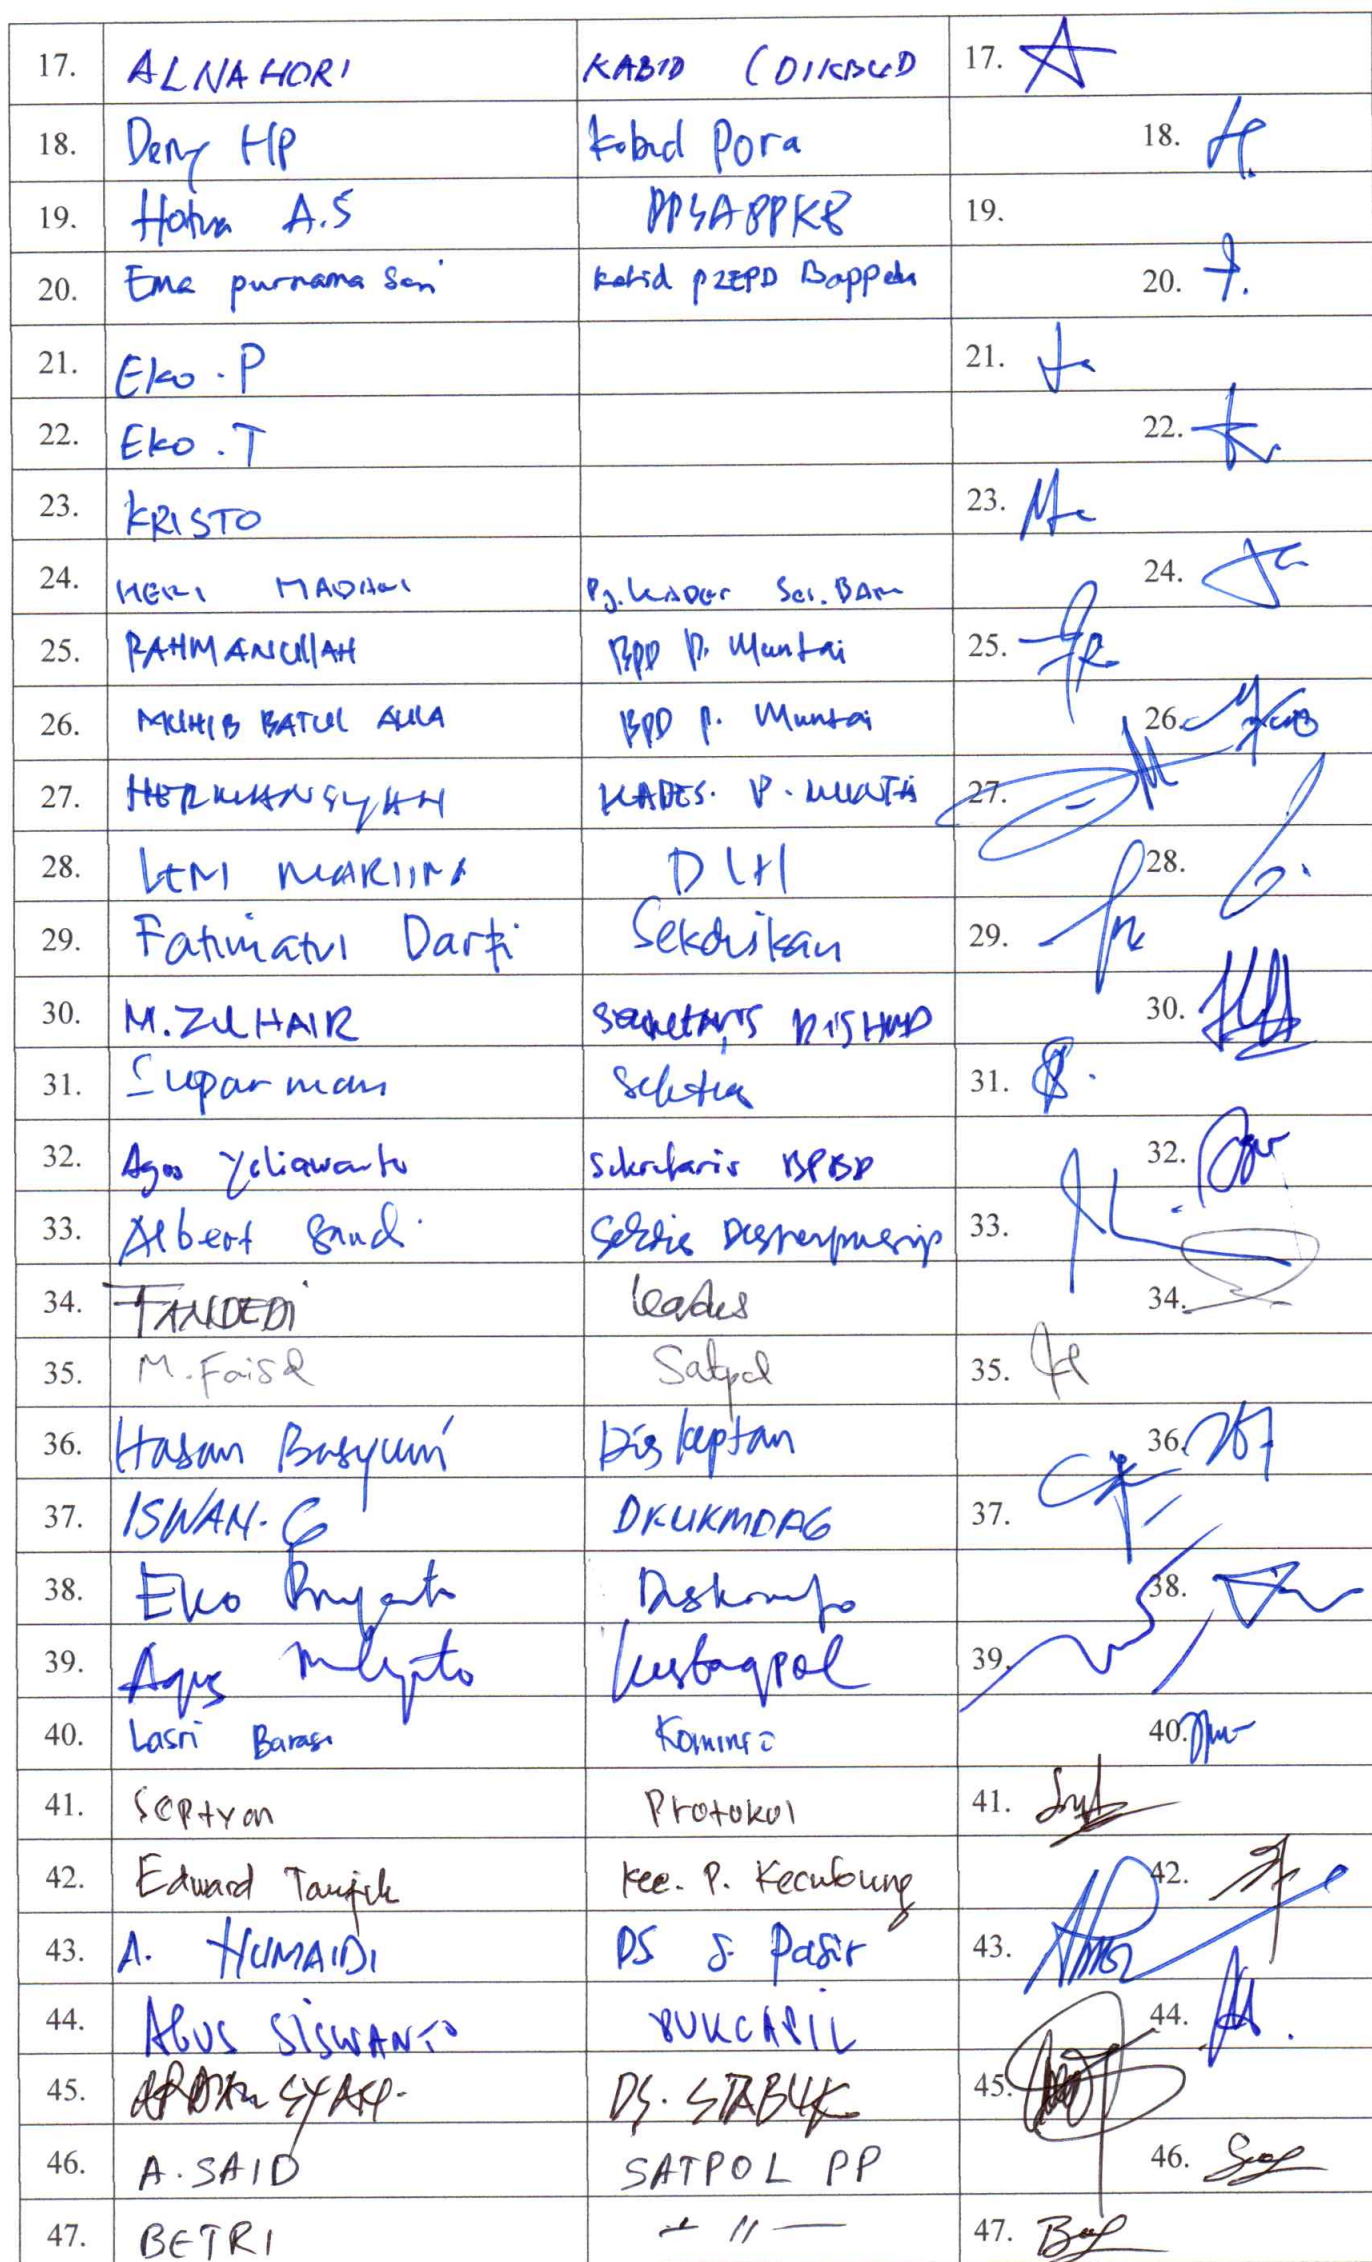 17. ALNAHORI KABID (DIKBUD 17.
18. Deny HP Kabid Pora 18.
19. Hotna A.S PPSAPPKB 19.
20. Ema purnama Sari Kabid P2EPD Bappeda 20.
21. Eko . P 21.
22. Eko . T 22.
23. KRISTO 23.
24. HERI MADANI Pj. KADES Sei. BAru 24.
25. RAHMANULLAH BPD P. Muntai 25.
26. MUHIB BATUL AULA BPD P. Muntai 26.
27. HERMANSYAH KADES. P. MUNTAI 27.
28. LENI MARLINA DLH 28.
29. Fatimatul Darti Sekdisikan 29.
30. M. ZULHAIR Sekretaris DISHUB 30.
31. Suparman 31.
32. Agus Yuliawanto Sekretaris BPBD 32.
33. Albert Sandi Sekdis Disperpusip 33.
34. TANDEDI Kades 34.
35. M. Faisal Satpol 35.
36. Hasan Basyuni Diskeptan 36.
37. ISWAN. G DKUKMDAG 37.
38. Eko Priyanto Diskominfo 38.
39. Agus Mulyanto Kesbangpol 39.
40. Lasri Barasi Kominfo 40.
41. Septyan Protokol 41.
42. Edward Taufik Kec. P. Kecubung 42.
43. A. HUMAIDI DS S. Pasir 43.
44. AGUS SISWANTO DUKCAPIL 44.
45. DS. STABUK 45.
46. A. SAID SATPOL PP 46.
47. BETRI — 〃 — 47.